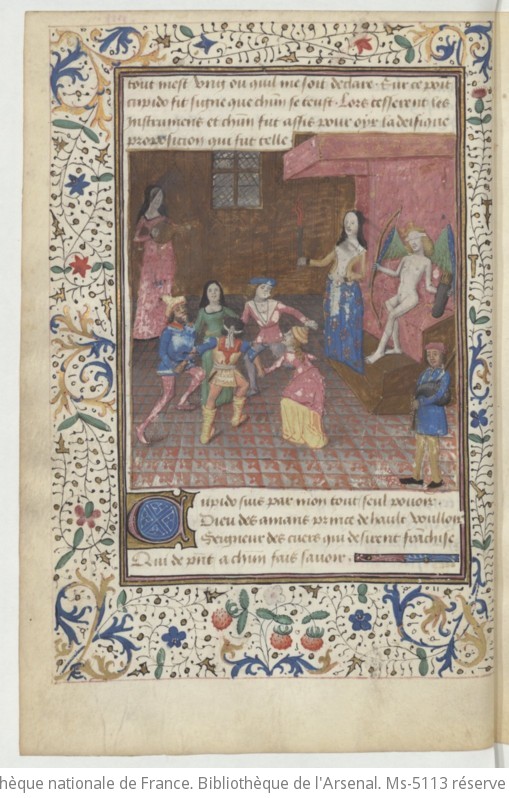 tout mest ung ou quil me soit declare. Sur ce poit
cupido fit signe que chun se teust. Lors cesserent les
Instrumens et chun fut assis pour oyr la deifique
proposition qui fut telle
Cupido suis par mon tout seul povoir
Dieu des amans prince de hault voulloir
Seigneur des cuers qui desirent franchise
Qui de pnt a chun fais savoir.
hèque nationale de France. Bibliothèque de l'Arsenal. Ms-5113 réserve